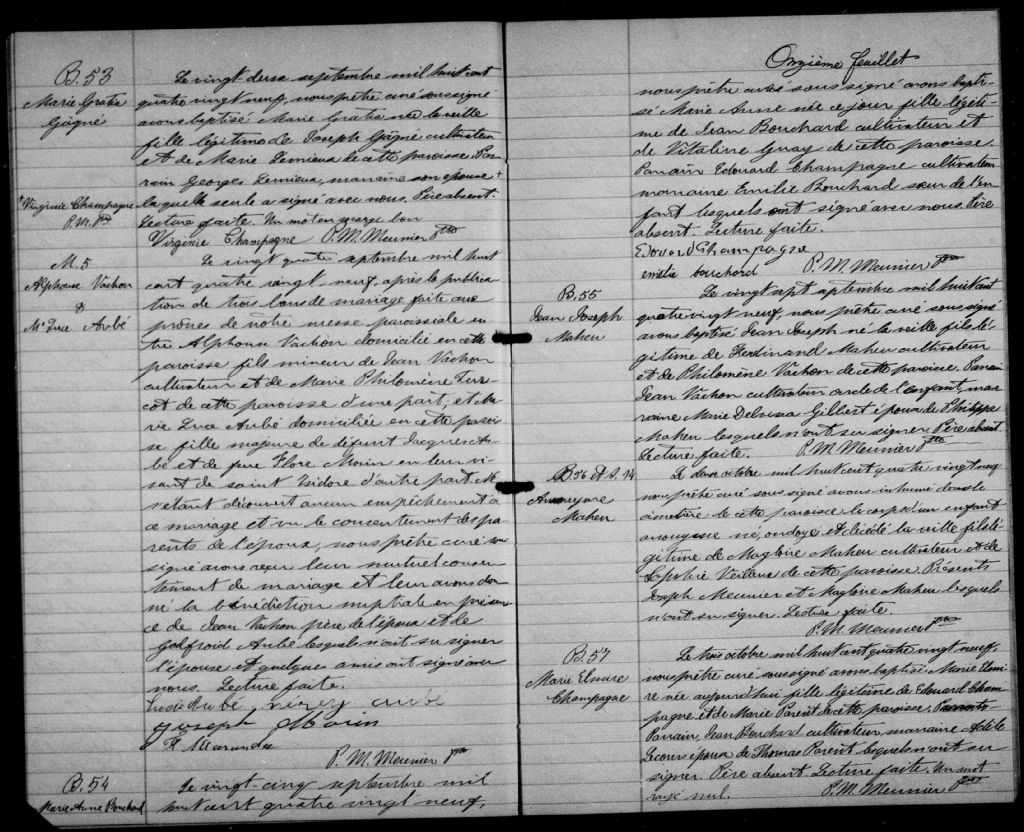 B. 53
Marie Gratia
Gagné
Le vingt-deux septembre mil huit cent
quatre vingt neuf, nous prêtre curé soussigné
avons baptisé Marie Gratia née la veille
fille légitime de Joseph Gagné cultivateur
et de Marie Lemieux de cette paroisse. Par-
rain Georges Lemieux, marraine son épouse +
+ Virginie Champagne
P. M. Ptre
laquelle seule a signé avec nous. Père absent.
Lecture faite. Un mot en marge bon
Virginie Champagne P. M. Meunier Ptre
M. 5
Alphonse Vachon
&
Me Luce Aubé
Le vingt quatre septembre mil huit
cent quatre vingt neuf, après la publica-
tion de trois bans de mariage faite aux
prônes de notre messe paroissiale en
tre Alphonse Vachon domicilié en cette
paroisse fils mineur de Jean Vachon
cultivateur et de Marie Philomène Tur-
cot de cette paroisse d'une part; et Ma-
rie Luce Aubé domiciliée en cette parois-
se fille majeure de défunt Jacques Au-
bé et de feue Flore Morin en leur vi-
vant de saint Isidore d'autre part. Ne
s'étant découvert aucun empêchement à
ce mariage et vu le consentement des pa-
rents de l'époux, nous prêtre curé sous
signé avons reçu leur mutuel consen-
tement de mariage et leur avons don-
né la bénédiction nuptiale en présen-
ce de Jean Vachon père de l'époux et de
Golfroid Aubé lesquels n'ont su signer
l'épouse et quelques amis ont signé avec
nous. Lecture faite.
Aubé aubé
Joseph Morin
P. M. Meunier ptre
B. 54
Marie Anne Bouchard
Le vingt-cinq septembre mil
huit cent quatre vingt neuf,
Onzième feuillet
nous prêtre curé sous signé avons bapti-
sé Marie Anne née ce jour fille légiti-
me de Jean Bouchard cultivateur et
de Vitaline Guay de cette paroisse.
Parrain Edouard Champagne cultivateur
marraine Emilie Bouchard sœur de l'en-
fant lesquels ont signé avec nous. Père
absent. Lecture faite.
Edouerd Champagne
emilie bouchard P. M. Meunier Ptre
B. 55
Jean Joseph
Maheu
Le vingt sept septembre mil huit cent
quatre vingt neuf, nous prêtre curé sous signé
avons baptisé Jean Joseph né la veille fils lé-
gitime de Ferdinand Maheu cultivateur
et de Philomène Vachon de cette paroisse. Parrain
Jean Vachon cultivateur oncle de l'enfant, mar-
raine Marie Delvina Gilbert épouse de Philippe
Maheu lesquels n'ont su signer. Père absent.
Lecture faite. P. M. Meunier Ptre
B. 56 et S. 14
Anonyme
Maheu
Le deux octobre mil huit cent quatre vingt neuf
nous prêtre curé sous signé avons inhumé dans le
cimetière de cette paroisse le corps d'un enfant
anonyme né, ondoyé et décédé la veille fils lé-
gitime de Magloire Maheu cultivateur et de
Veilleux de cette paroisse. Présents
Joseph Meunier et Magloire Maheu lesquels
n'ont su signer. Lecture faite.
P. M. Meunier Ptre
B. 57
Marie Elmire
Champagne
Le trois octobre mil huit cent quatre vingt neuf,
nous prêtre curé soussigné avons baptisé Marie Elmi-
re née aujourd'hui fille légitime de Edouard Cham-
pagne et de Marie Parent de cette paroisse.
Parrain, Jean Bouchard cultivateur, marraine Adèle
épouse de Thomas Parent lesquels n'ont su
signer. Père absent. Lecture faite. Un mot
rayé nul. P. M. Meunier Ptre